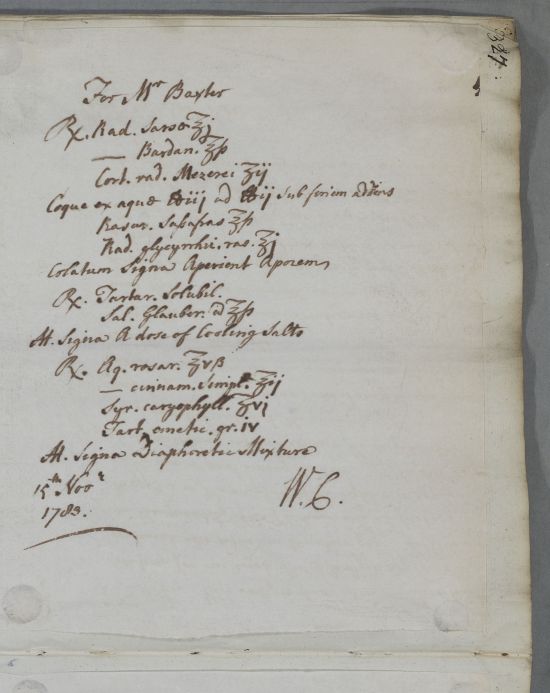 327.
For Mr Baxter
Rx. Rad. Sarsæ ℥j
— Bardan. ℥ß
Cort. rad. Mezerei ʒij
Coque ex aquæ ℔iij ad ℔ij sub finem addens
Rasur. Sassafras ℥ß
Rad. glycyrrhi. ras. ʒj
Colatum Signa Aperient Apozem
Rx. Tartar. Solubil.
Sal. Glauber. a͞a ℥ß
M. Signa A dose of Cooling Salts
Rx. Aq. rosar. ℥vß
— cinnam. Simpl. ℥ij
Syr. caryophyll. ʒvj
Tart. emetic. gr. iv
M. Signa Diaphoretic Mixture
15th Novr
W. C.
1783.